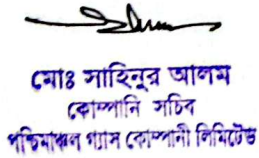 মোঃ সাহিনুর আলম
কোম্পানি সচিব
পশ্চিমাঞ্চল গ্যাস কোম্পানী লিমিটেড